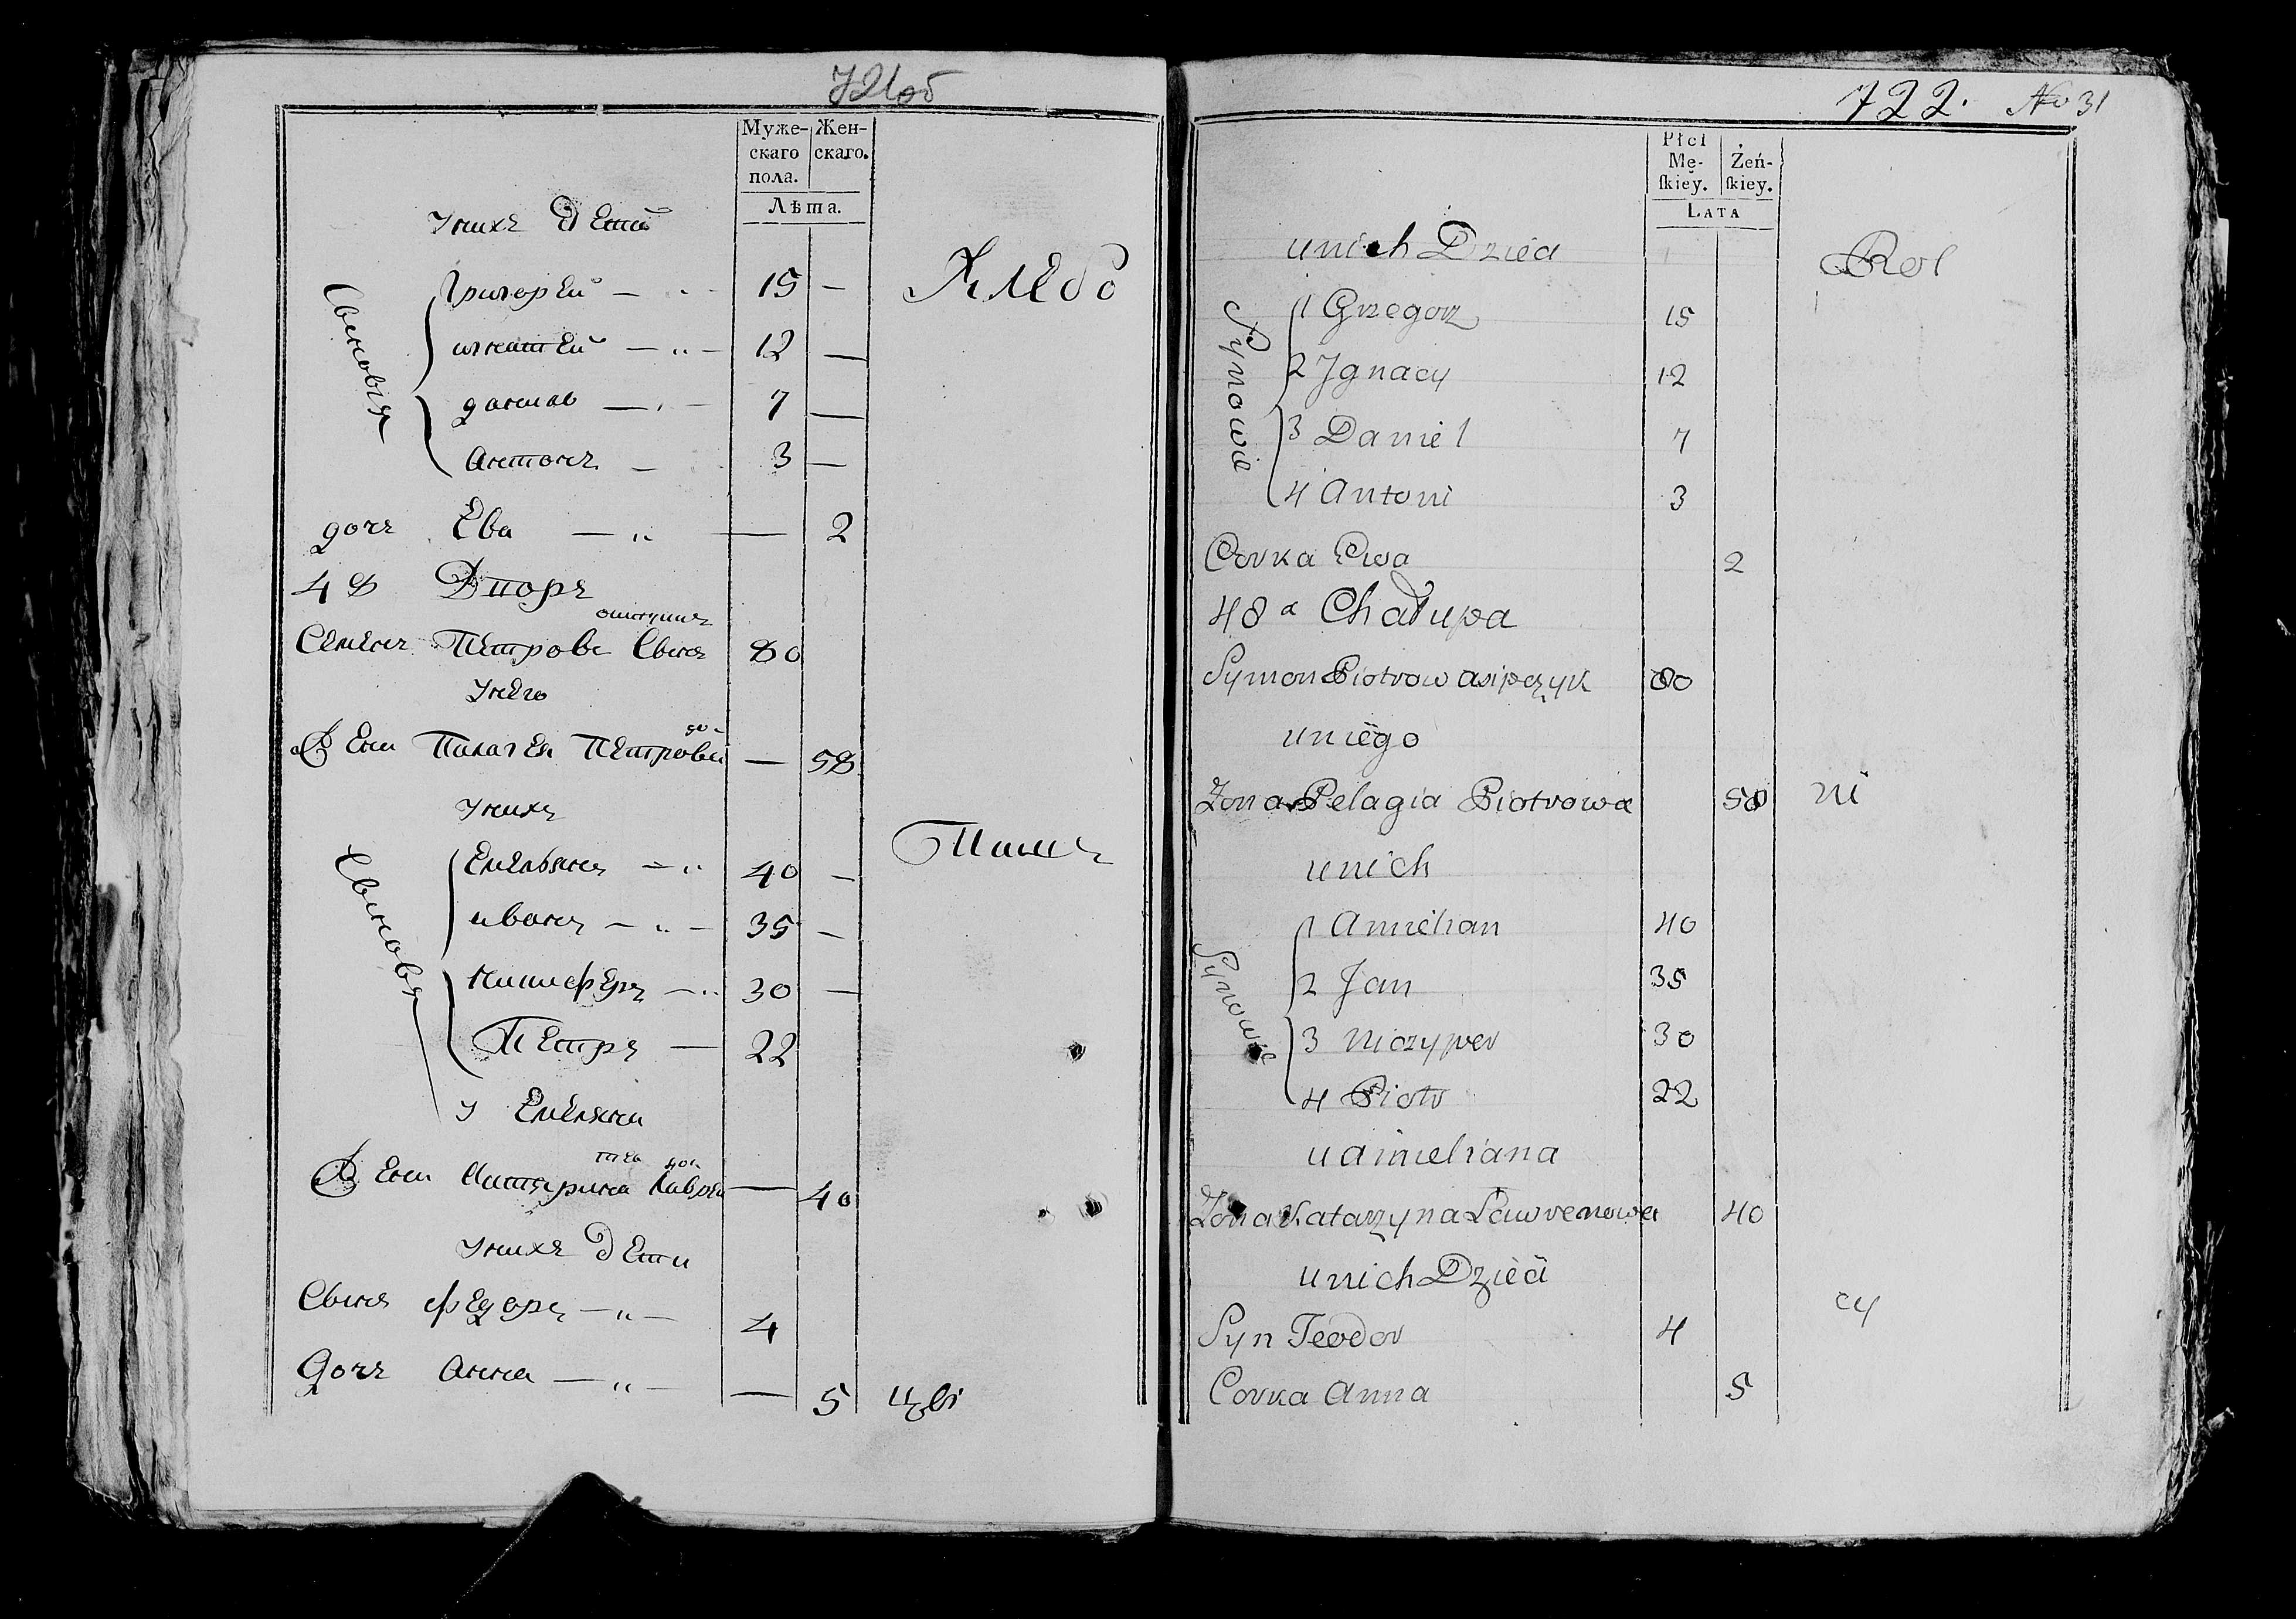 721об
Муже-
скаго
пола.
Жен-
скаго.
Лѣта.
Унихъ Дети
Синовья
Григорей — 15 —
игнатей — 12 —
данило — 7 —
Антонъ — 3 —
Хлебо
дочъ Ева — — 2
48 Дворъ
Семенъ Петровъ Синъ 80
Унего
Жена Палагея Петрова до- — 58
Унихъ
Синовья
Емельянъ — 40 —
иванъ — 35 —
Ничиферъ — 30 —
Петръ — 22
Паш
У Емеляна
Жена Катерина — 40
Унихъ Дети
Синъ федоръ — 4
Дочъ Анна — — 5
722. No 31
Płci
Mę-
skiey.
Żeń-
skiey.
LATA
unich Dzieci
Rol
Synowie
1 Grzegorz 15
2 Jgnacy 12
3 Daniel 7
4 Antoni 3
Corka Ewa 2
48 a Chałupa
Symon Piotrow asipczyk 80
uniego
Żona Pelagia Piotrowa 58 ni
unich
Synowie
1 Amielian 40
2 Jan 35
3 Niczyper 30
4 Piotr 22
u amieliana
Żona Katarzyna Lawrenowa 40
unich Dzieci
cy
Syn Teodor 4
Corka Anna 5